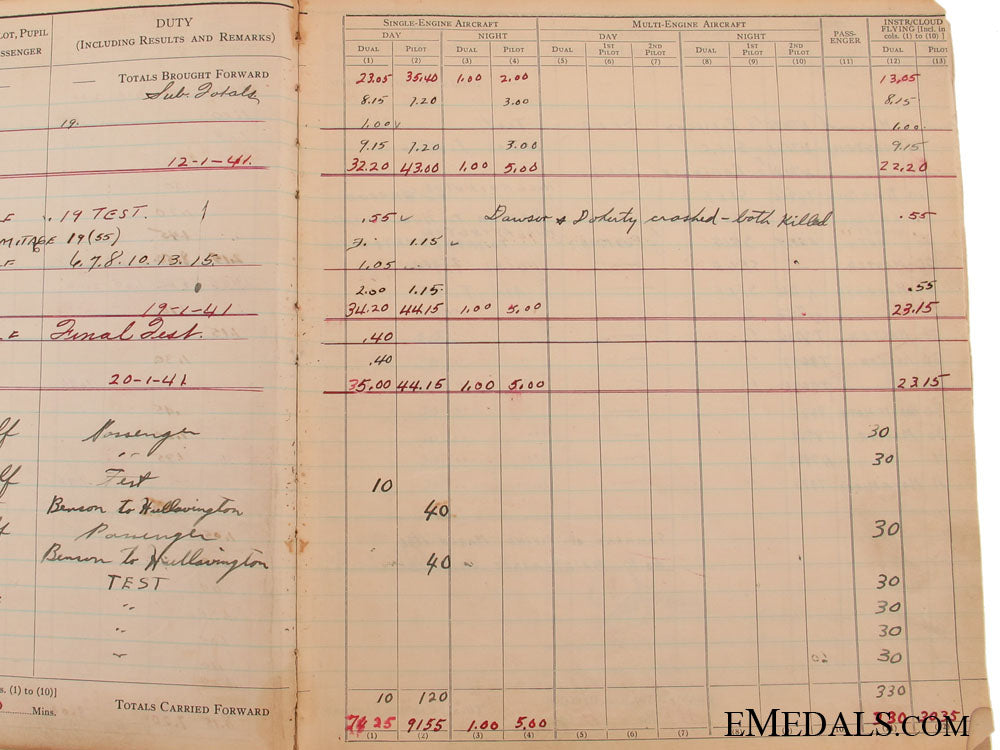 LOT, PUPIL DUTY SINGLE-ENGINE AIRCRAFT MULTI-ENGINE AIRCRAFT INSTR/CLOUD
SSENGER (INCLUDING RESULTS AND REMARKS) DAY NIGHT DAY NIGHT PASS-ENGER FLYING [Incl. in cols. (1) to (10)]
DUAL PILOT DUAL PILOT DUAL 1ST PILOT 2ND PILOT DUAL 1ST PILOT 2ND PILOT DUAL PILOT
(1) (2) (3) (4) (5) (6) (7) (8) (9) (10) (11) (12) (13)
— TOTALS BROUGHT FORWARD 23.05 35.40 1.00 2.00 13.05
Sub. Totals 8.15 7.20 3.00 8.15
19. 1.00 1.00
9.15 7.20 3.00 9.15
12-1-41. 32.20 43.00 1.00 5.00 22.20
F 19 TEST. .55 Dawson & Doherty crashed - both killed .55
MITAGE 19 (55) 1.15
F 6.7.8.10.13.15. 1.05
2.00 1.15 .55
19-1-41 34.20 44.15 1.00 5.00 23.15
F Final Test. .40
.40
20-1-41 35.00 44.15 1.00 5.00 23.15
lf Passenger 30
" 30
lf Test 10
Benson to Hullavington 40
Passenger 30
Benson to Hullavington 40
TEST 30
" 30
" 30
" 30
s. (1) to (10)] 10 120 330
Mins. TOTALS CARRIED FORWARD 9155 1.00 5.00
(1) (2) (3) (4) (5) (6) (7)
EMEDALS.COM